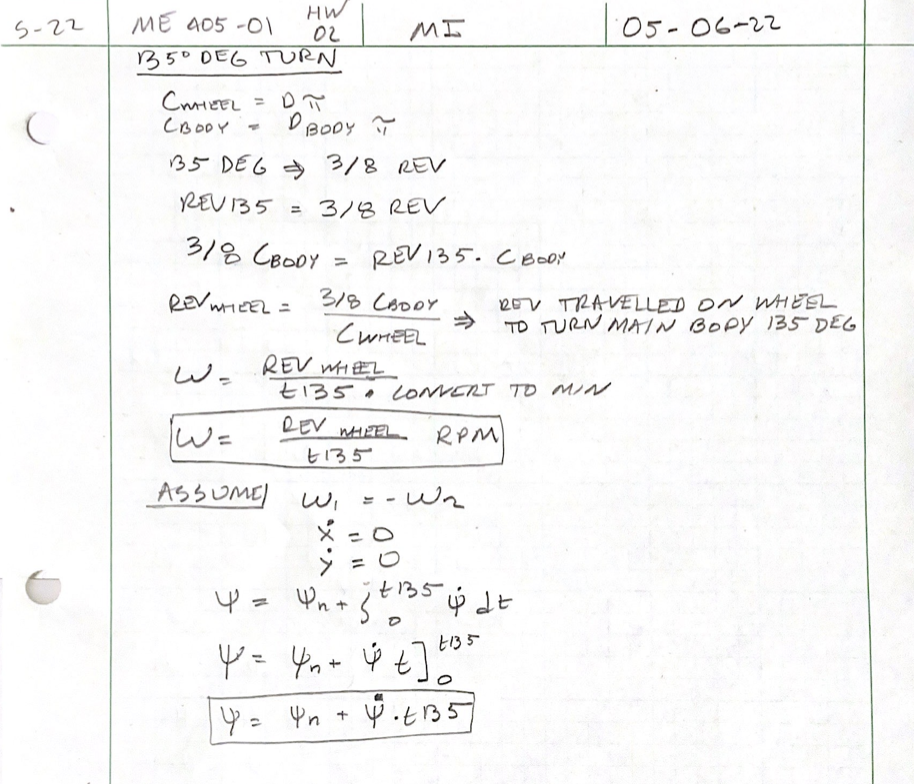 S-22 ME 405-01 HW 02 MI 05-06-22
135° DEG TURN
CWHEEL = Dπ
CBODY = DBODY π
135 DEG ⇒ 3/8 REV
REV135 = 3/8 REV
3/8 CBODY = REV135 · CBODY
REVWHEEL = 3/8 CBODY / CWHEEL ⇒ REV TRAVELLED ON WHEEL
TO TURN MAIN BODY 135 DEG
ω = REV WHEEL / t135 · CONVERT TO MIN
ω = REV WHEEL / t135 RPM
ASSUME ω₁ = -ω₂
ẋ = 0
ẏ = 0
Ψ = Ψn + ∫₀^t135 ψ̇ dt
Ψ = Ψn + ψ̇ t]₀^t135
Ψ = Ψn + ψ̇ · t135